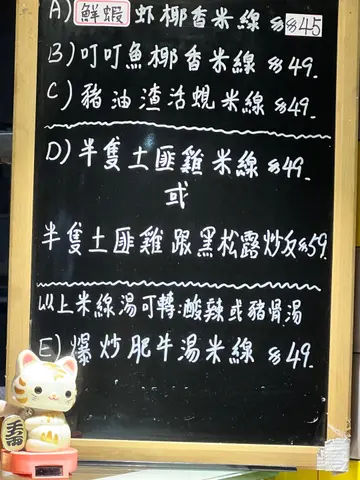 A) 鮮蝦 虾椰香米線 $45
B) 叮叮魚椰香米線 $49.
C) 豬油渣活蜆米線 $49.
D) 半隻土匪雞米線 $49.
或
半隻土匪雞跟黑松露炒飯 $59.
以上米線湯可轉:酸辣或豬骨湯
E) 爆炒肥牛湯米線 $49.